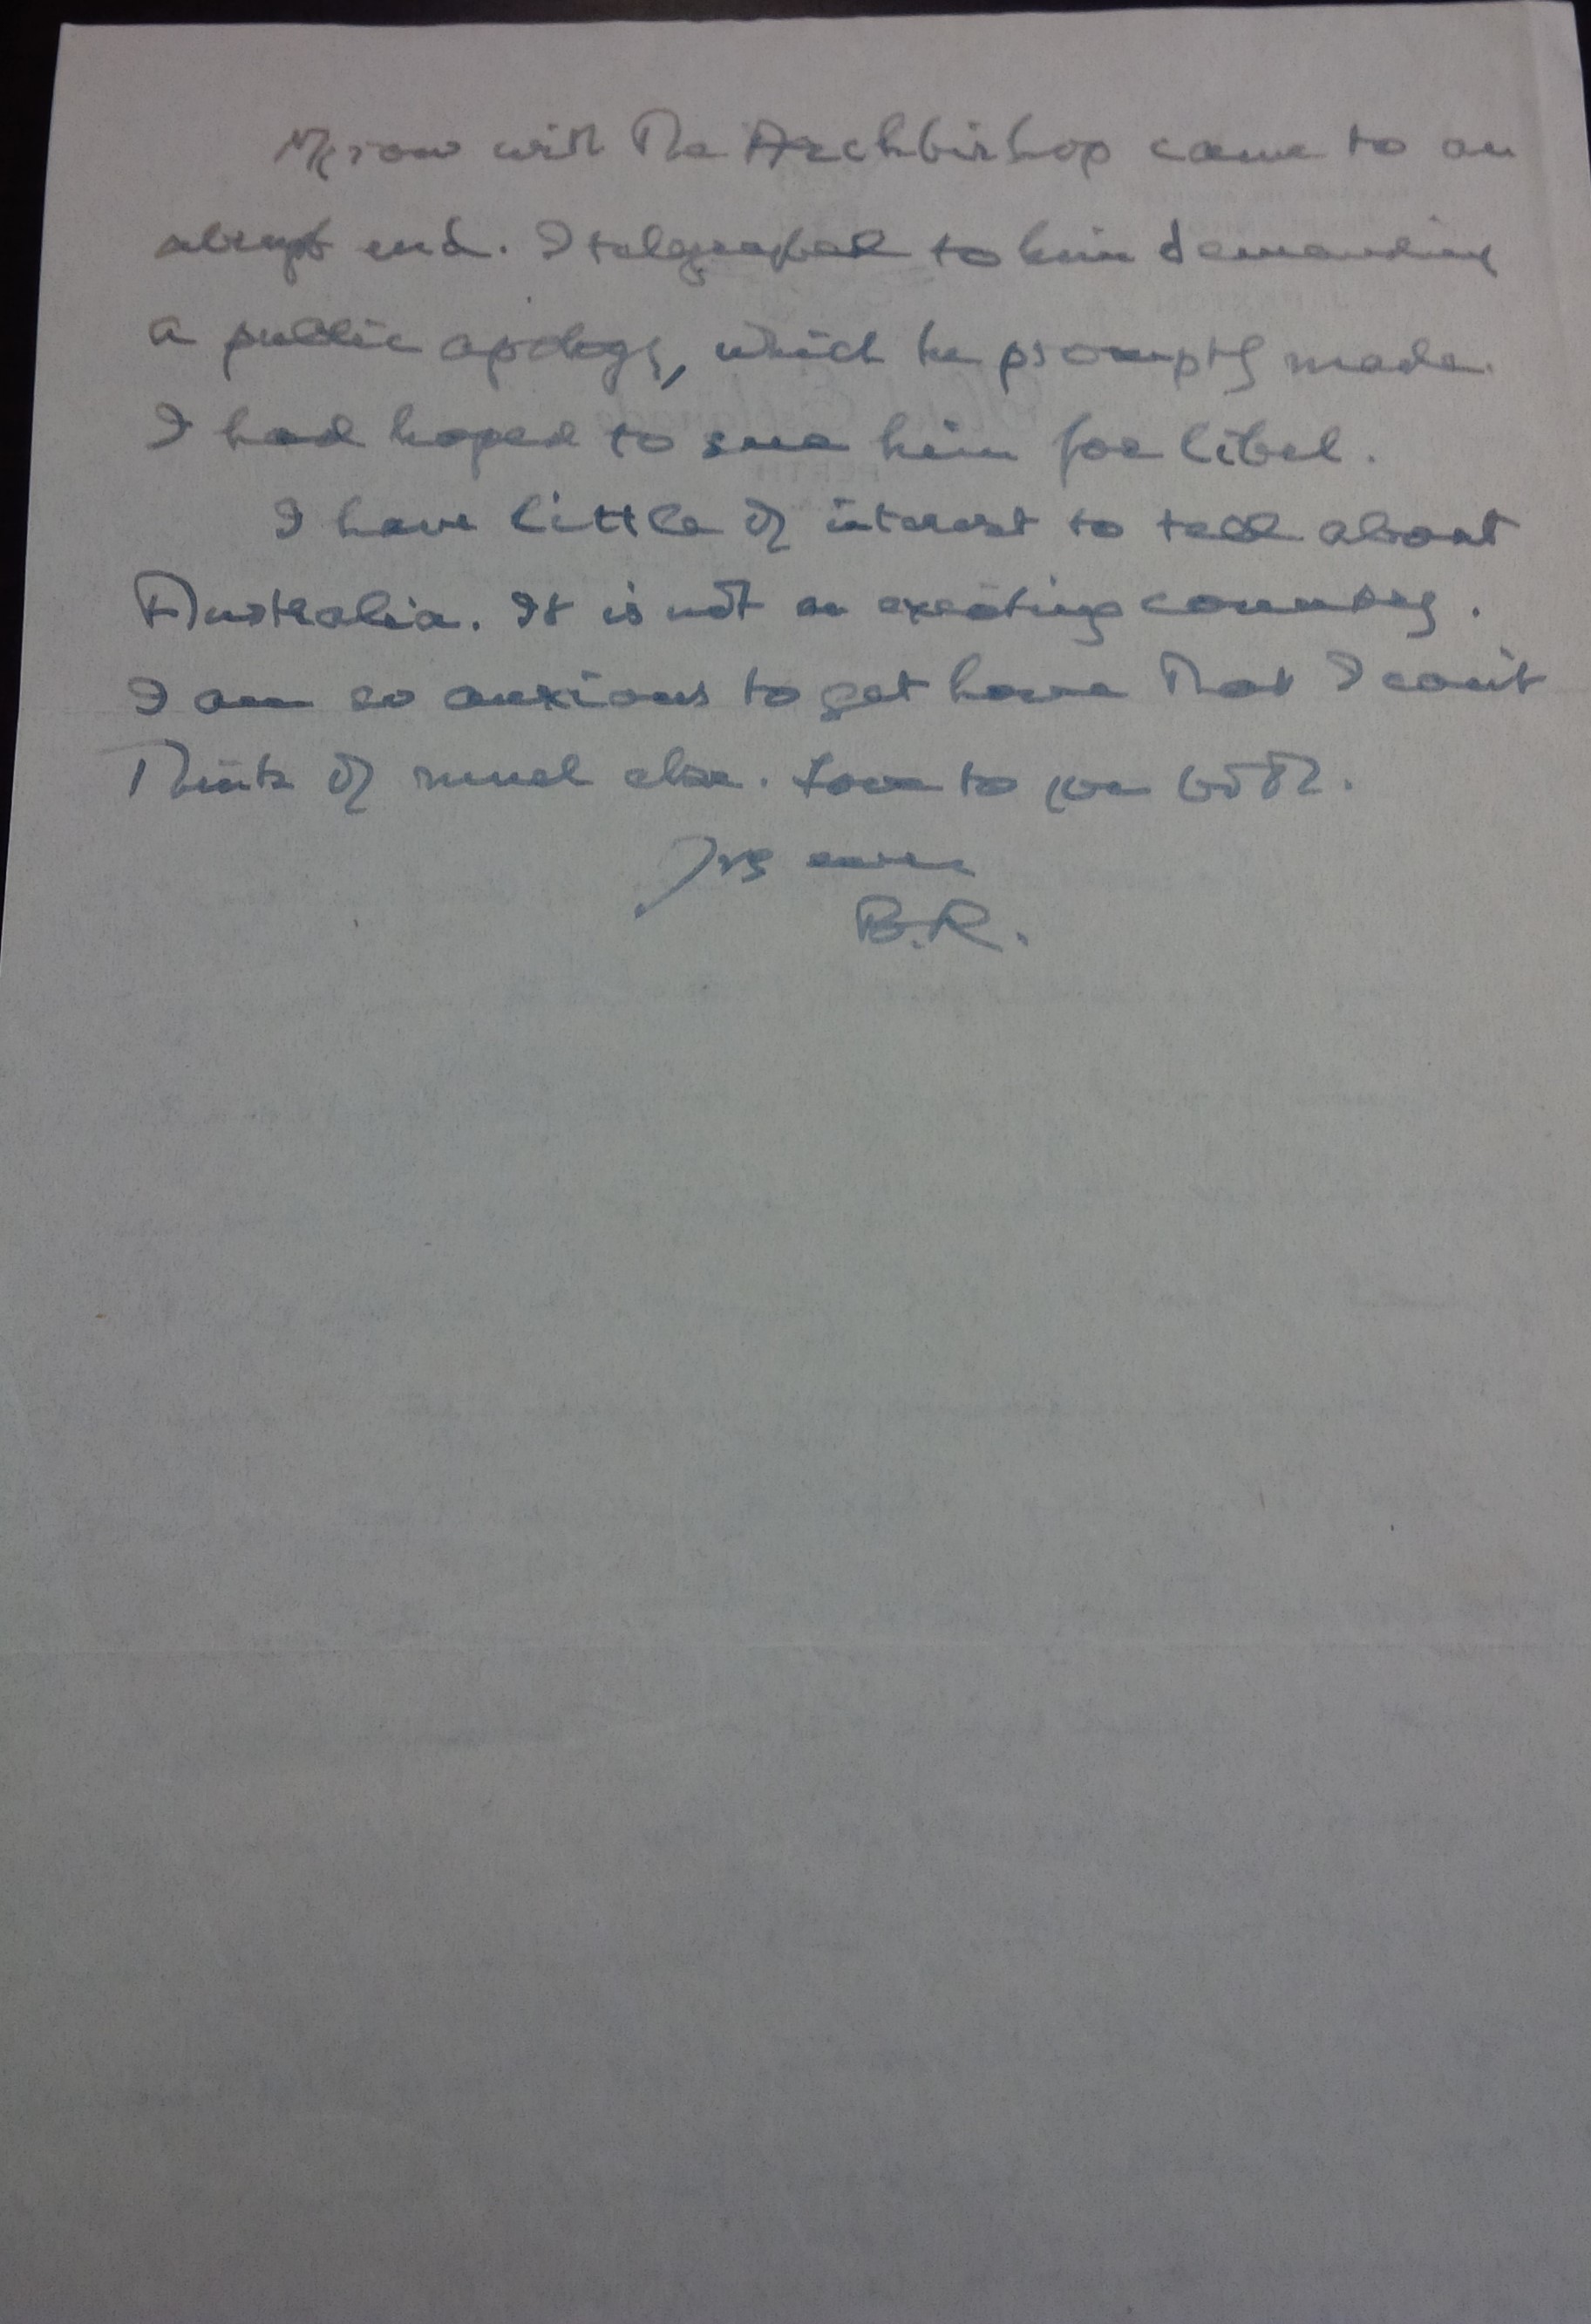 My row with the Archbishop came to an
abrupt end. I telegraphed to him demanding
a public apology, which he promptly made.
I had hoped to sue him for libel.
I have little of interest to tell about
Australia. It is not an exciting country.
I am so anxious to get home that I can't
think of much else. Love to you both.
Yrs ever
B.R.